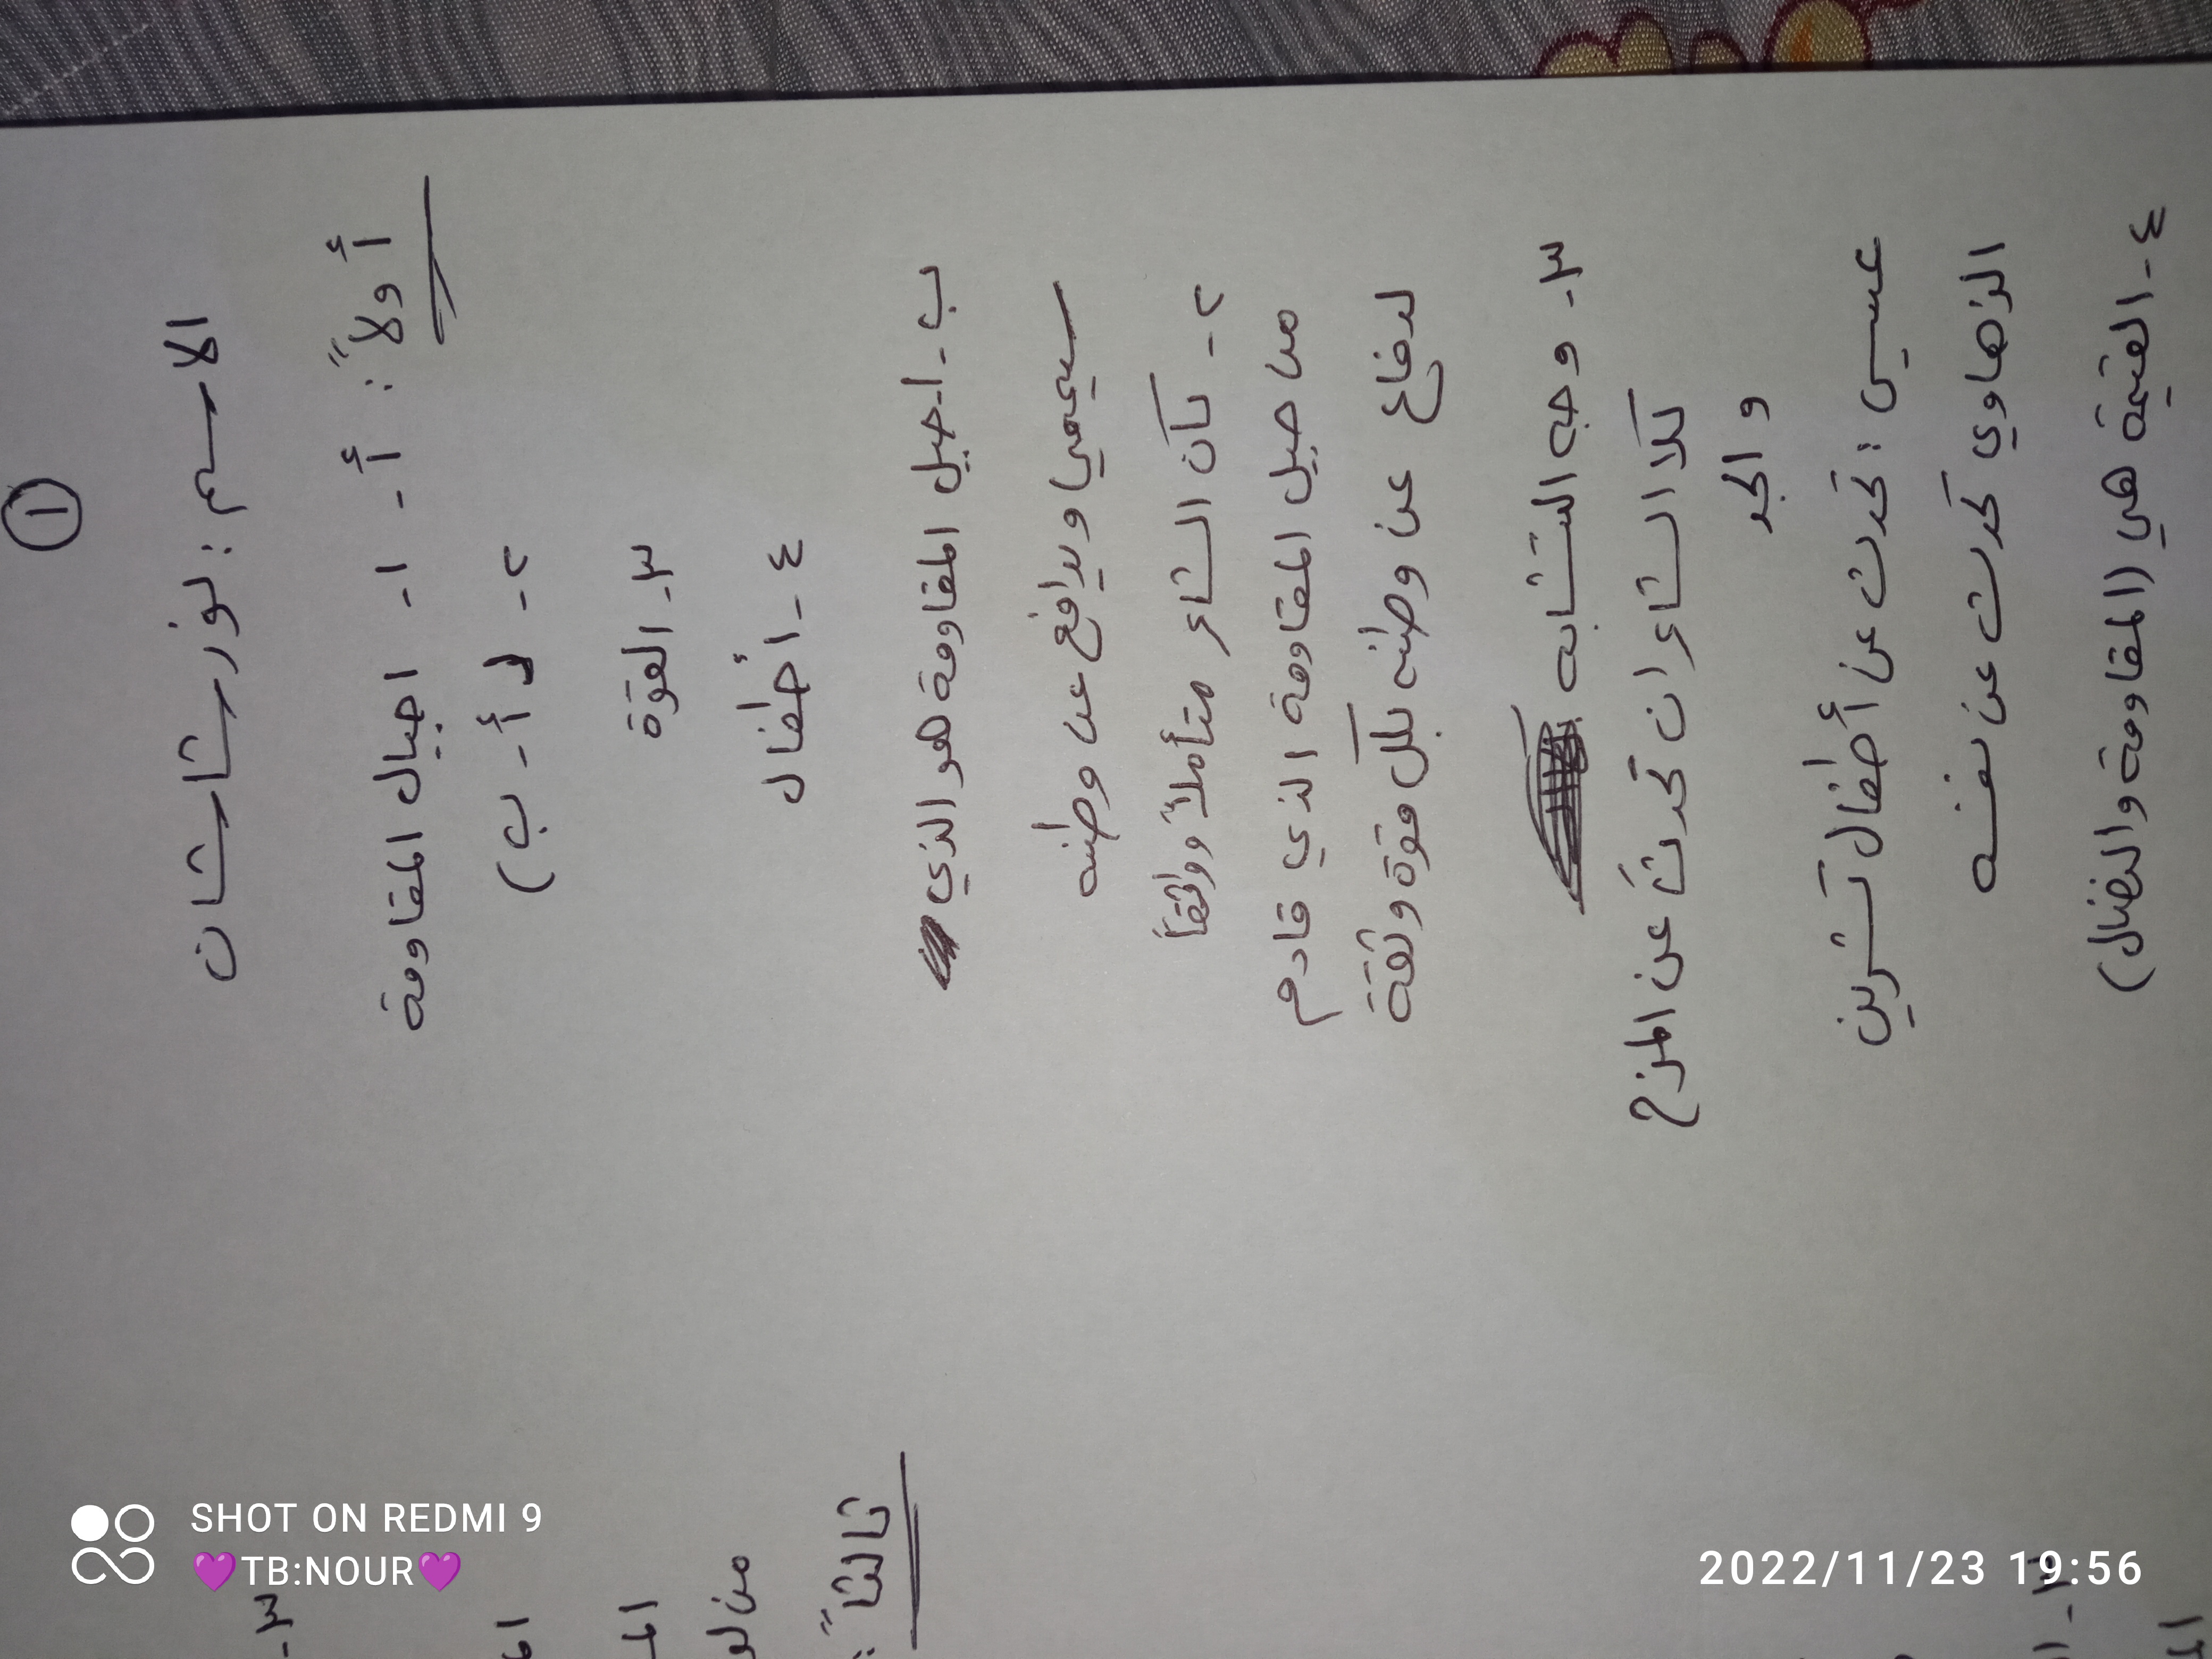 ①
الاسم : نور شاشان
أولاً : أ - ١ - اجيال المقاومة
٢ - ( أ - ب )
٣ - القوة
٤ - أطفال
ب - ١ - جيل المقاومة هو الذي
سيحمي ويدافع عن وطنه
٢ - كان الشاعر متأملاً وواثقاً
من جيل المقاومة الذي قادم
لدفاع عن وطنه بكل قوة وثقة
٣ - وجه التشابه
كلا الشاعران تحدث عن المزح
و الجد
عيسى : تحدث عن أطفال تشرين
الزهاوي تحدث عن نفسه
٤ - القيمة هي ( المقاومة والنضال )
٣ -
من
ثالثاً :
٣ -
SHOT ON REDMI 9
💜TB:NOUR💜
2022/11/23 19:56